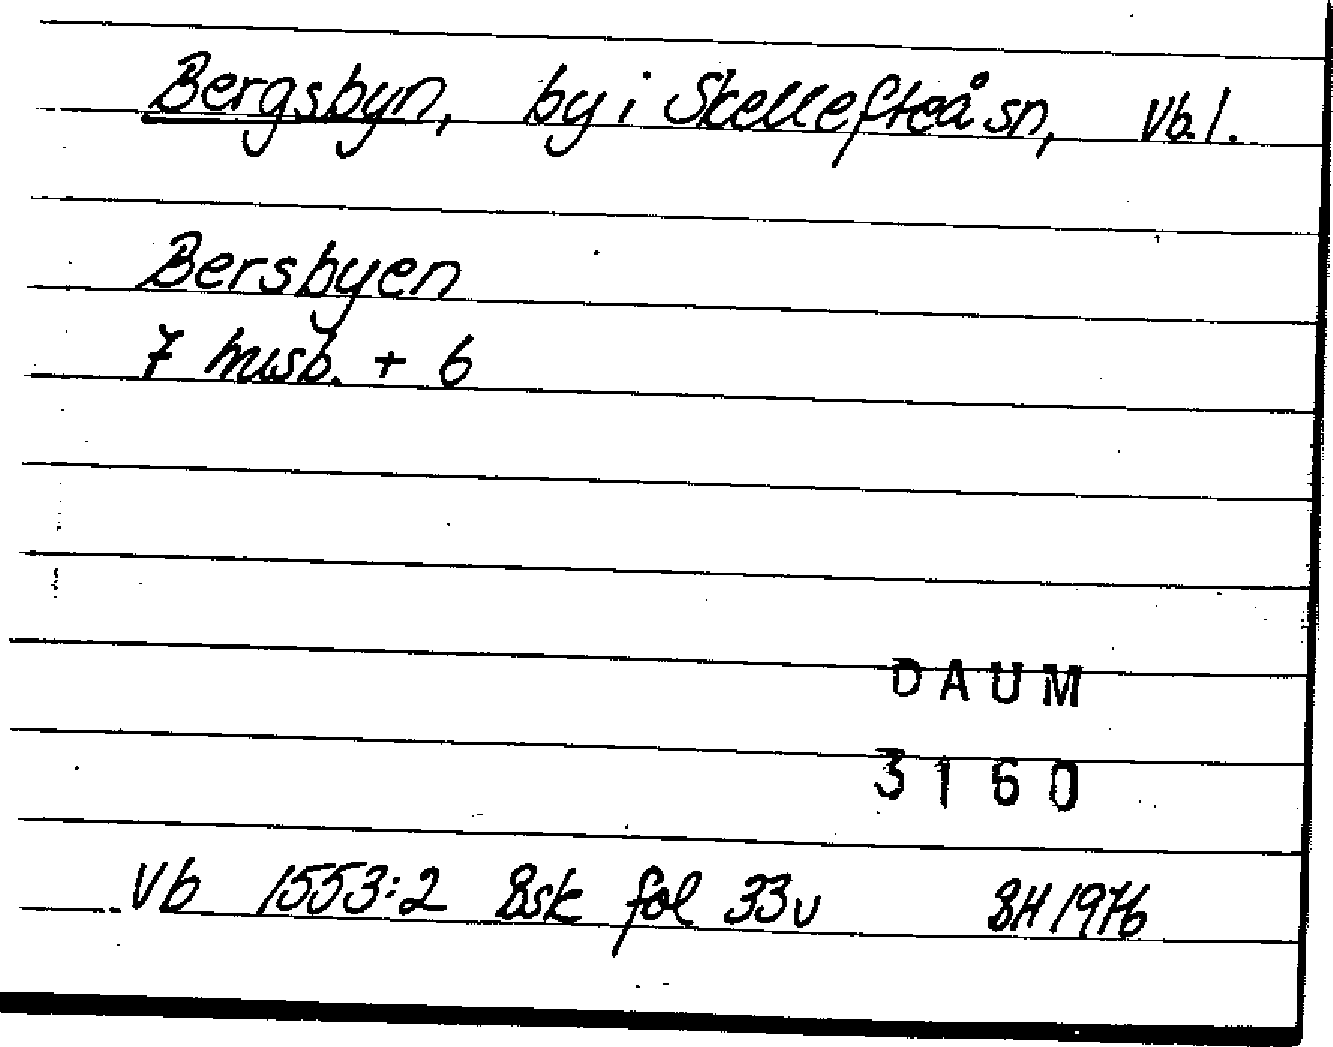 Bergsbyn, by i Skellefteå sn, Vb.l.
Bersbyen
7 husb. + 6
DAUM
3160
Vb 1553:2 Bsk fol 33v BH 1976